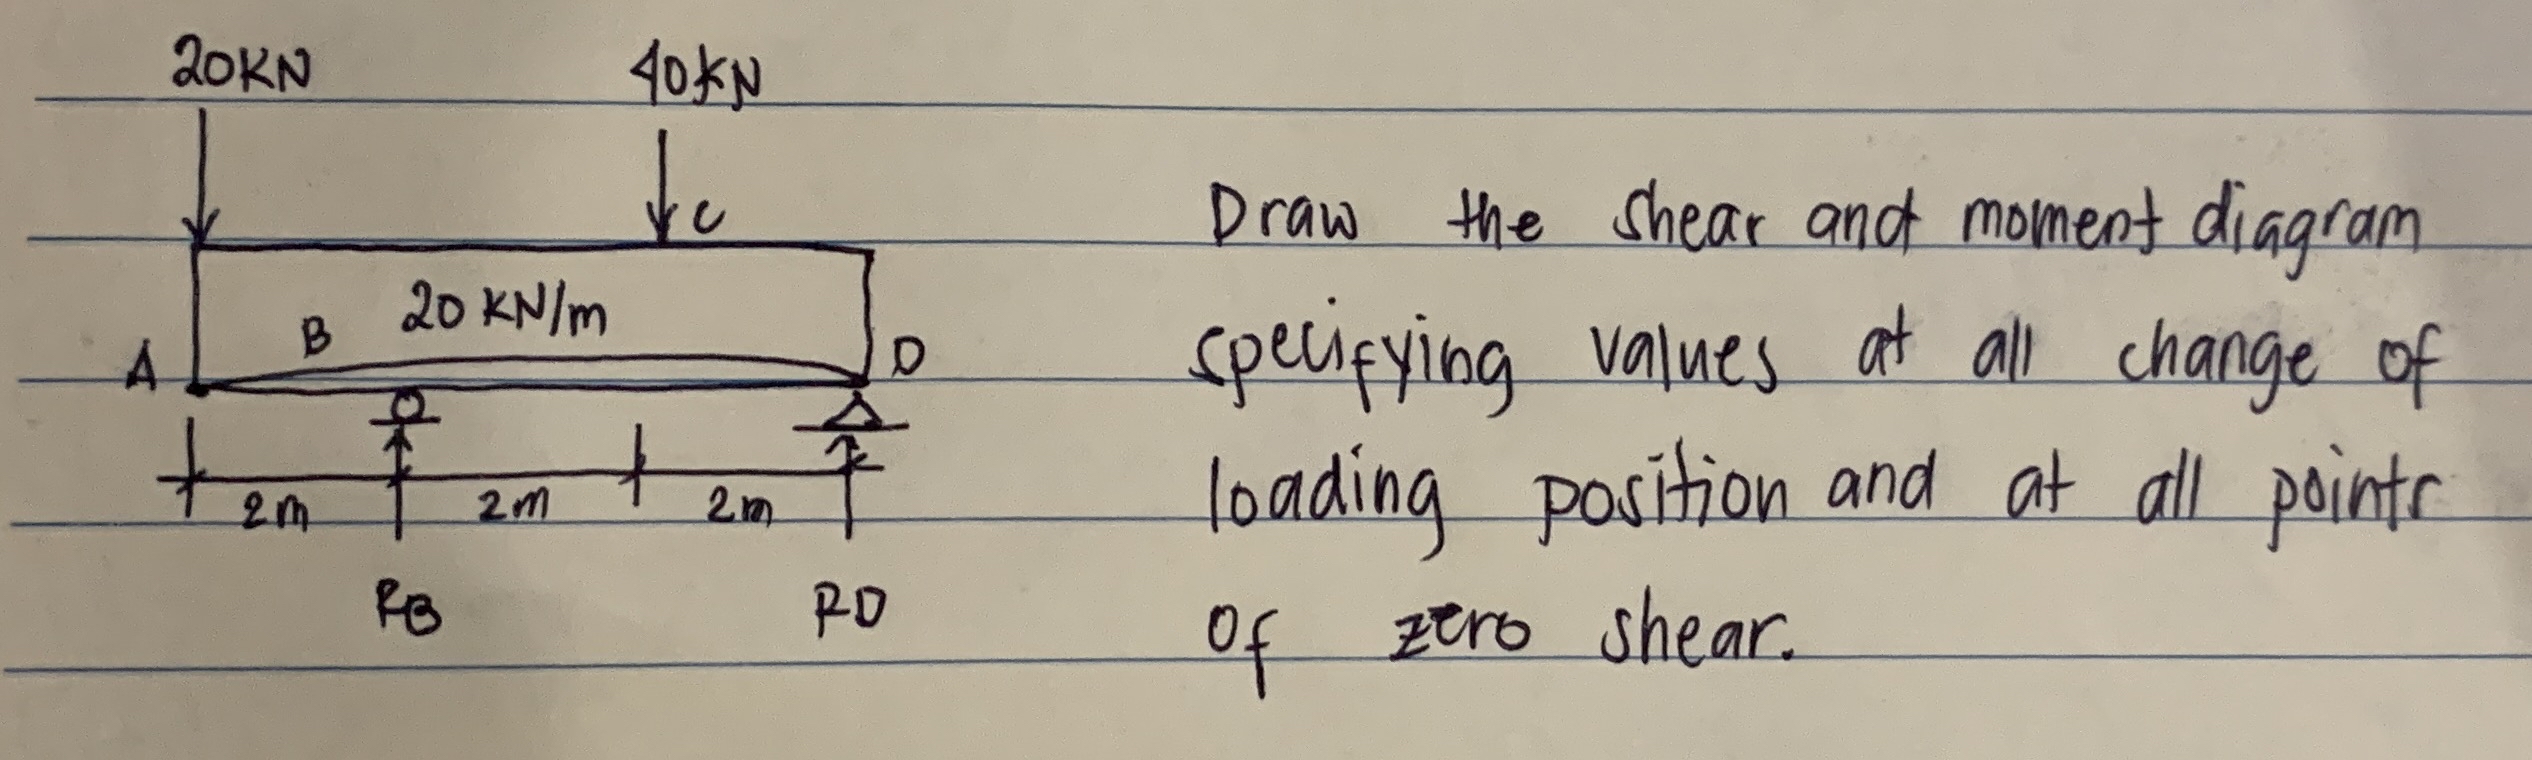 20KN 40KN
C
Draw the shear and moment diagram
B 20 KN/m
A D
specifying values at all change of
2m 2m 2m
loading position and at all points
RB RD
of zero shear.